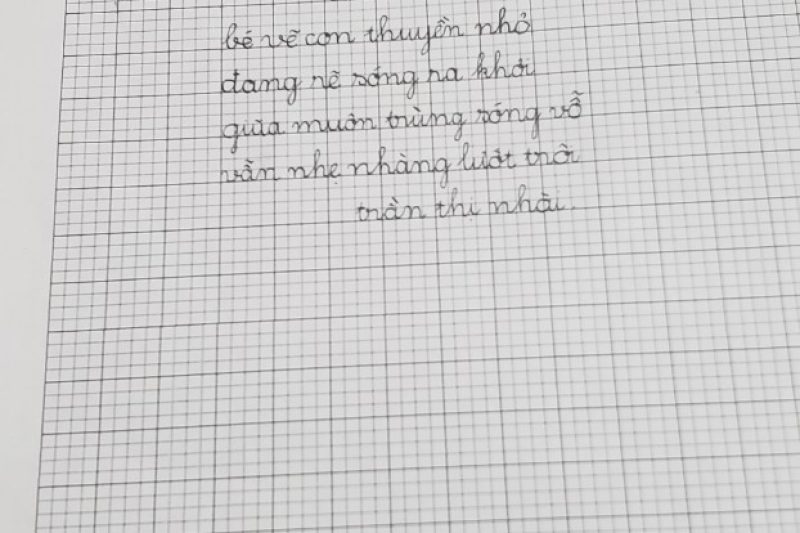 bé vẽ con thuyền nhỏ
đang rẽ sóng ra khơi
giữa muôn trùng sóng vỗ
vẫn nhẹ nhàng lướt trôi
trần thị nhài.